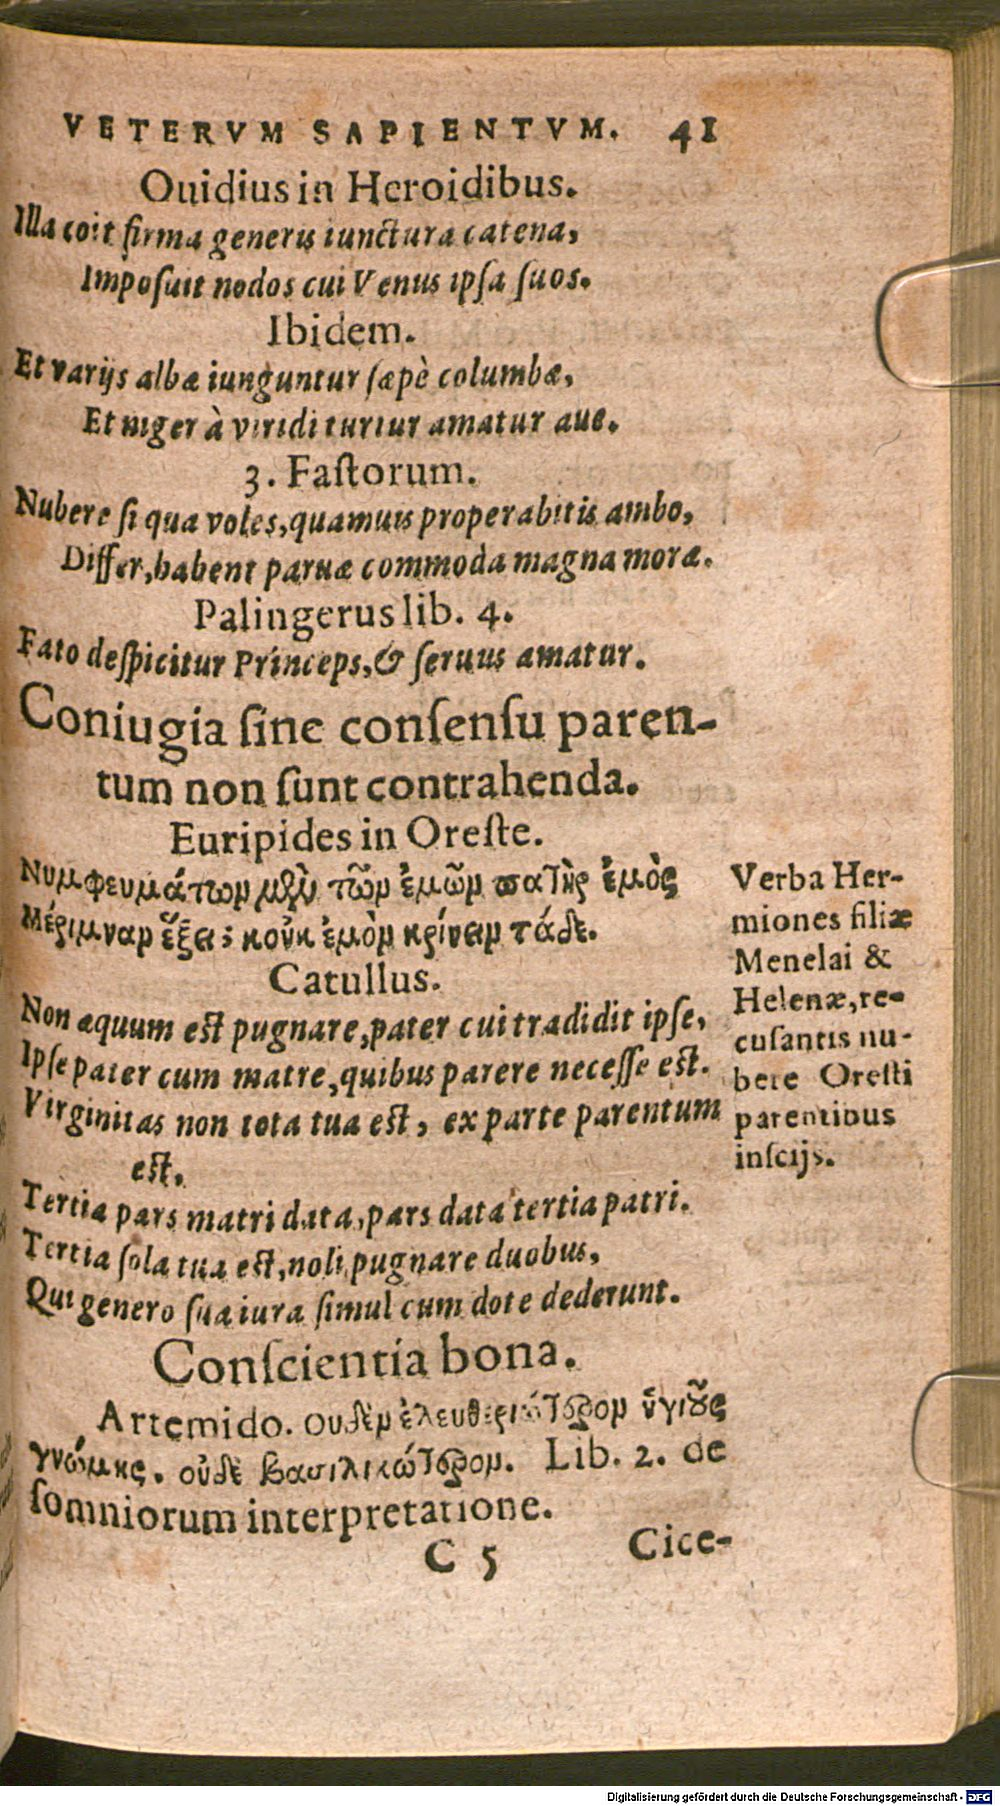 VETERVM SAPIENTVM. 41
Ouidius in Heroidibus.
Illa coit firma generis iunctura catena,
Imposuit nodos cui Venus ipsa suos.
Ibidem.
Et varijs albæ iunguntur sæpè columbæ,
Et niger à viridi turtur amatur aue.
3. Fastorum.
Nubere si qua voles, quamuis properabitis ambo,
Differ, habent paruæ commoda magna moræ.
Palingerus lib. 4.
Fato despicitur Princeps, & seruus amatur.
Coniugia sine consensu paren-
tum non sunt contrahenda.
Euripides in Oreste.
Νυμφευμάτων μὲν τῶν ἐμῶν πατὴρ ἐμὸς
Μέριμναν ἕξει; κοὐκ ἐμὸν κρίνειν τάδε.
Catullus.
Non æquum est pugnare, pater cui tradidit ipse,
Ipse pater cum matre, quibus parere necesse est.
Virginitas non tota tua est, ex parte parentum
est.
Tertia pars matri data, pars data tertia patri.
Tertia sola tua est, noli pugnare duobus,
Qui genero sua iura simul cum dote dederunt.
Verba Her-
miones filiæ
Menelai &
Helenæ, re-
cusantis nu-
bere Oresti
parentibus
inscijs.
Conscientia bona.
Artemido. ουδὲν ἐλευθεριώτερον ὑγιοῦς
γνώμης. οὐδὲ βασιλικώτερον. Lib. 2. de
somniorum interpretatione.
C 5 Cice-
Digitalisierung gefördert durch die Deutsche Forschungsgemeinschaft - DFG